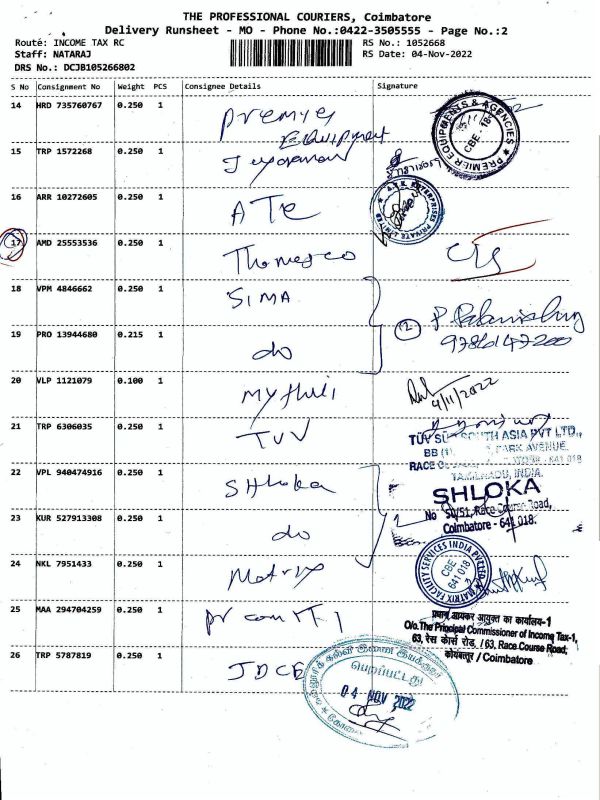 THE PROFESSIONAL COURIERS, Coimbatore
Delivery Runsheet - MO - Phone No.:0422-3505555 - Page No.:2
Route: INCOME TAX RC
Staff: NATARAJ
DRS No.: DCJB105266802
RS No.: 1052668
RS Date: 04-Nov-2022
S No Consignment No Weight PCS Consignee Details Signature
14 HRD 735760767 0.250 1 Premier Equipment
PREMIER EQUIPMENTS & AGENCIES CBE - 18
15 TRP 1572268 0.250 1
16 ARR 10272605 0.250 1 ATE
ENTERPRISES PRIVATE LIMITED
17 AMD 25553536 0.250 1
18 VPM 4846662 0.250 1 SIMA
19 PRO 13944680 0.215 1 do
2
20 VLP 1121079 0.100 1 Mythili
4/11/2022
21 TRP 6306035 0.250 1 TUV
TÜV SÜD SOUTH ASIA PVT LTD.,
PARK AVENUE,
RACE 641 018
TAMILNADU, INDIA.
22 VPL 940474916 0.250 1 SHloka
SHLOKA
No 50/51, Race Course Road,
Coimbatore - 641 018.
23 KUR 527913308 0.250 1 do
2
24 NKL 7951433 0.250 1 Matrix
MATRIX FACILITY SERVICES INDIA PVT LTD
CBE
641 018
25 MAA 294704259 0.250 1
प्रधान आयकर आयुक्त का कार्यालय-1
O/o. The Principal Commissioner of Income Tax-1,
63, रेस कोर्स रोड, / 63, Race Course Road,
कोयंबत्तूर / Coimbatore
26 TRP 5787819 0.250 1 JDCE
கல்லூரிக் கல்வி இணை இயக்குநர்
பெறப்பட்டது
04 NOV 2022